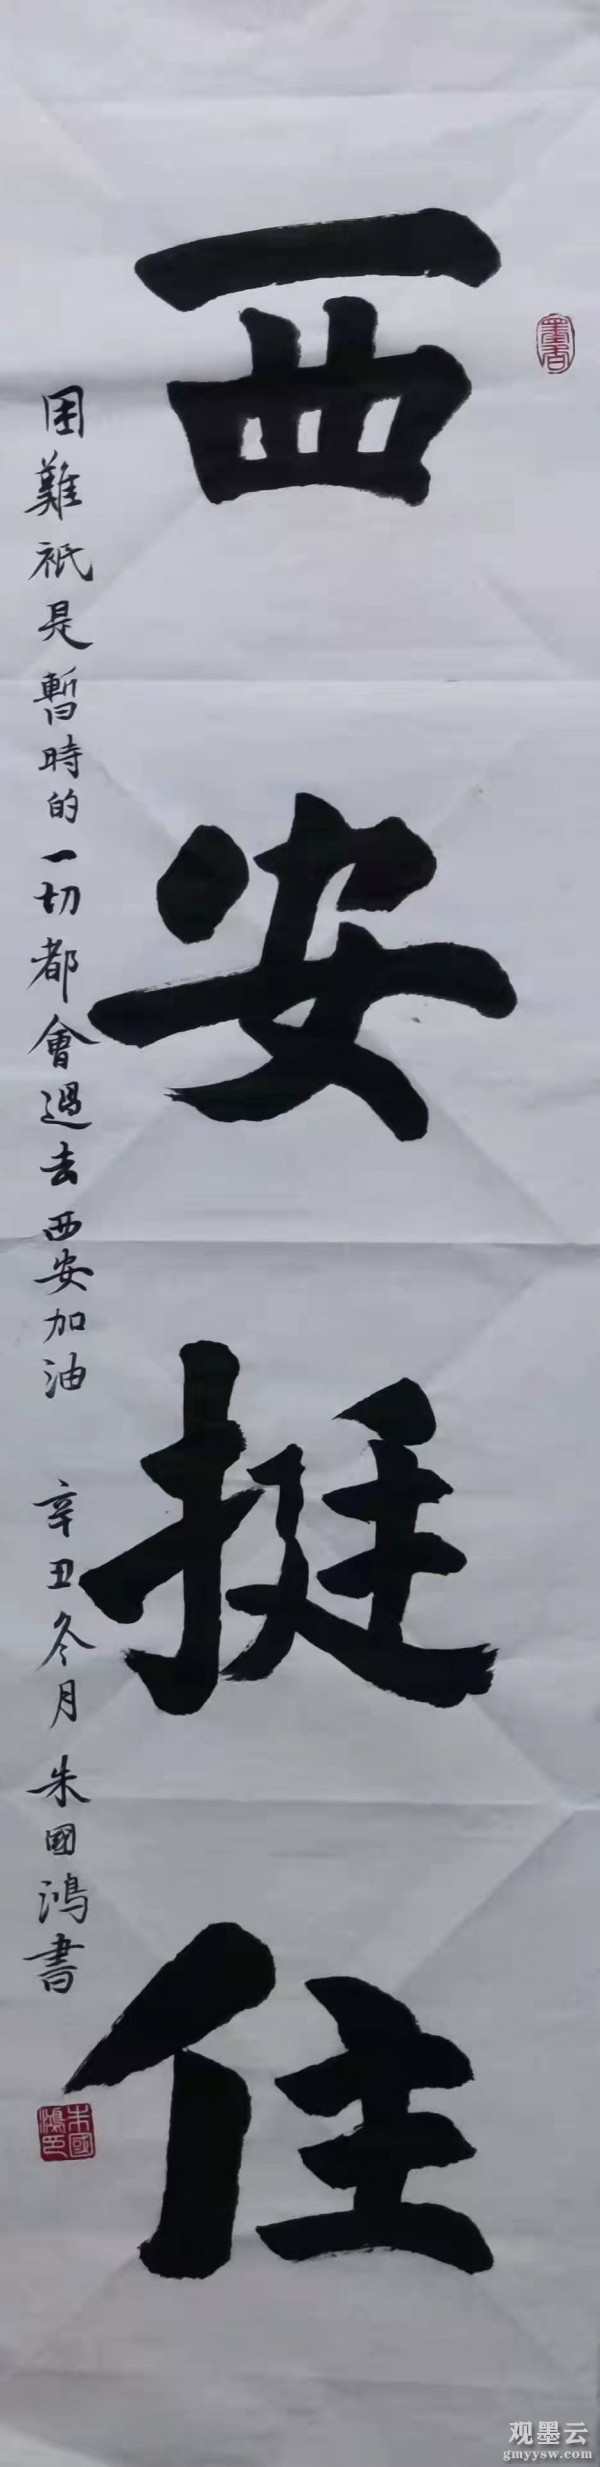 西安挺住
困難祇是暫時的一切都會過去西安加油 辛丑冬月 朱國鴻書
墨香
朱國鴻印
观墨云
gmyysw.com